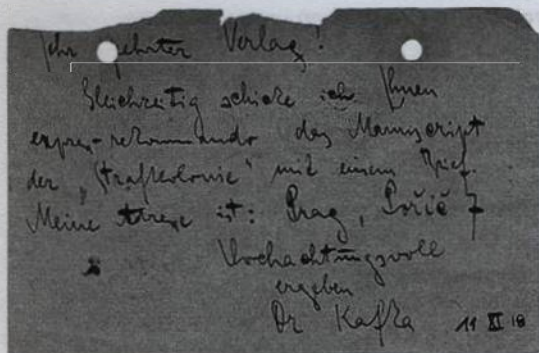 Sehr geehrter Verlag!
Gleichzeitig schicke ich Ihnen
express-rekommando das Manuscript
der „Strafkolonie“ mit einem Brief.
Meine Adresse ist: Prag, Poříč 7
Hochachtungsvoll
ergeben
Dr Kafka 11 XI 18